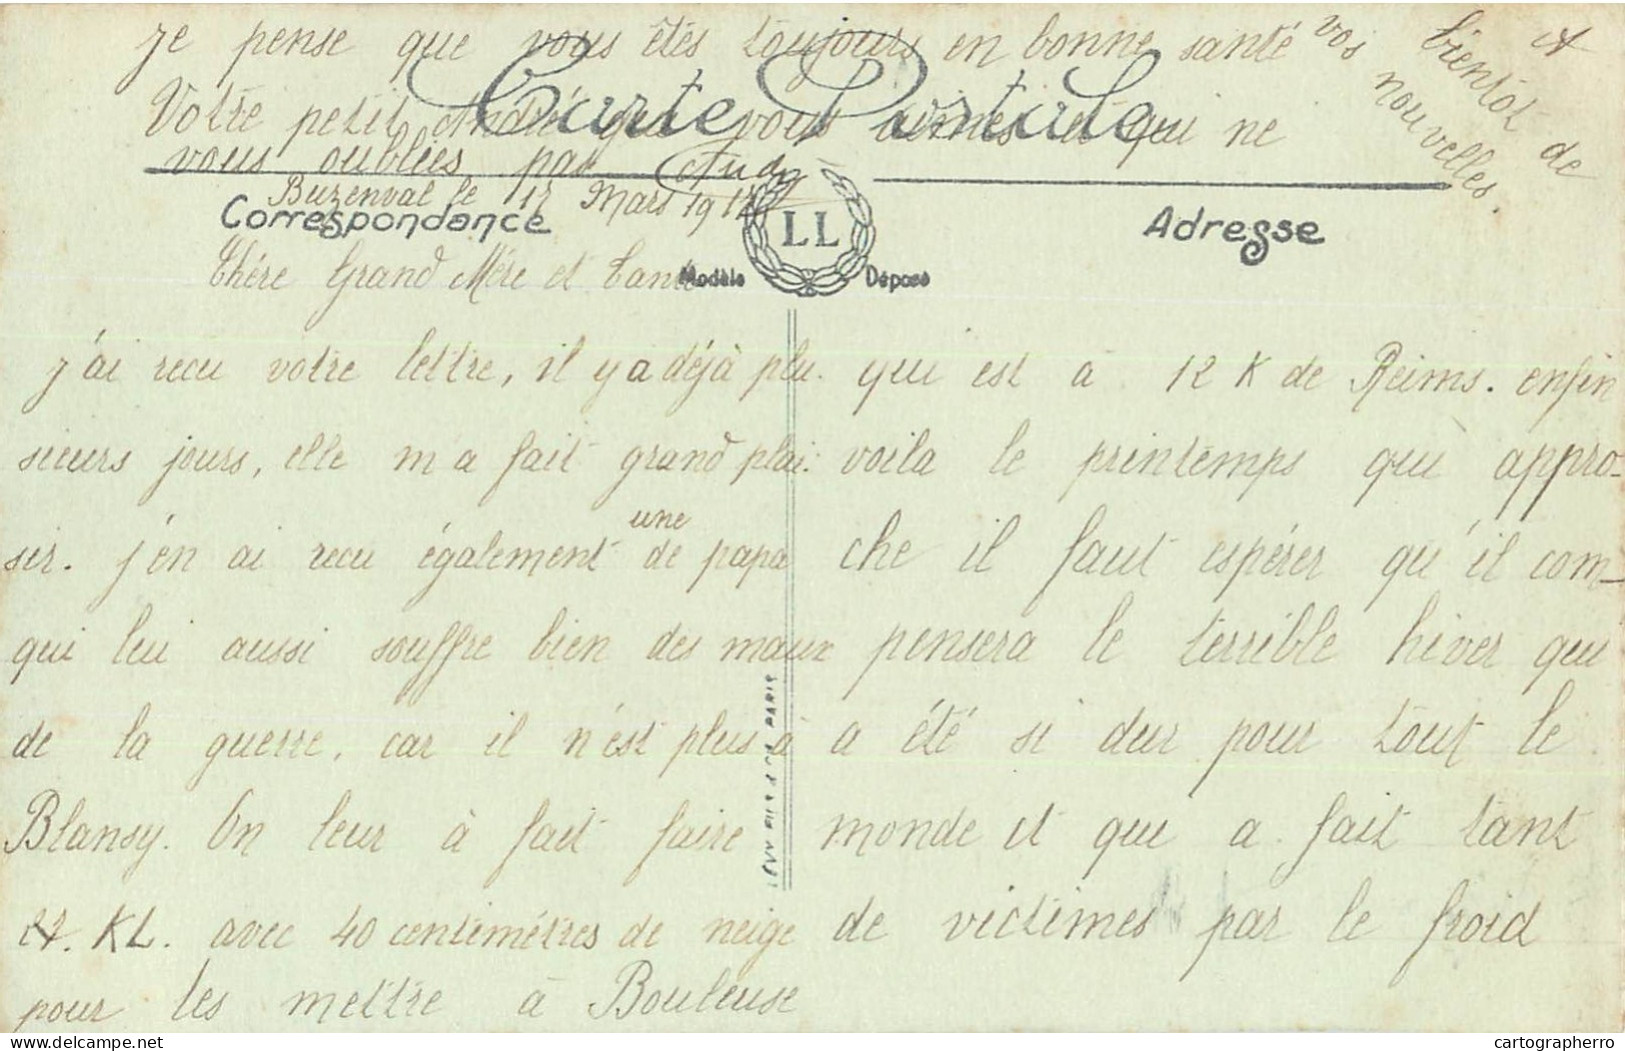 Buzenval le 17 Mars 191
Chére Grand Mére et Tante
j'ai recu votre lettre, il y a déjà plu-
sieurs jours, elle m a fait grand plai-
sir. j'én ai recu également une de papa
qui lui aussi souffre bien des maux
de la guerre. car il n'ést plus à
Blansy. On leur à fait faire
27. KL. avec 40 centimétres de neige
pour les mettre à Bouleuse
qui est à 12 K de Reims. enfin
voila le printemps qui appro-
che il faut espérer qu'il com-
pensera le terrible hiver qui
a été si dur pour tout le
monde et qui a fait tant
de victimes par le froid
je pense que vous êtes toujours en bonne santé
Votre petit André qui vous aimes et qui ne
vous oubliés pas
et bientôt de
vos nouvelles.
Carte Postale
Correspondance
Adresse
LL
Modèle Déposé
www.delcampe.net
cartographerro